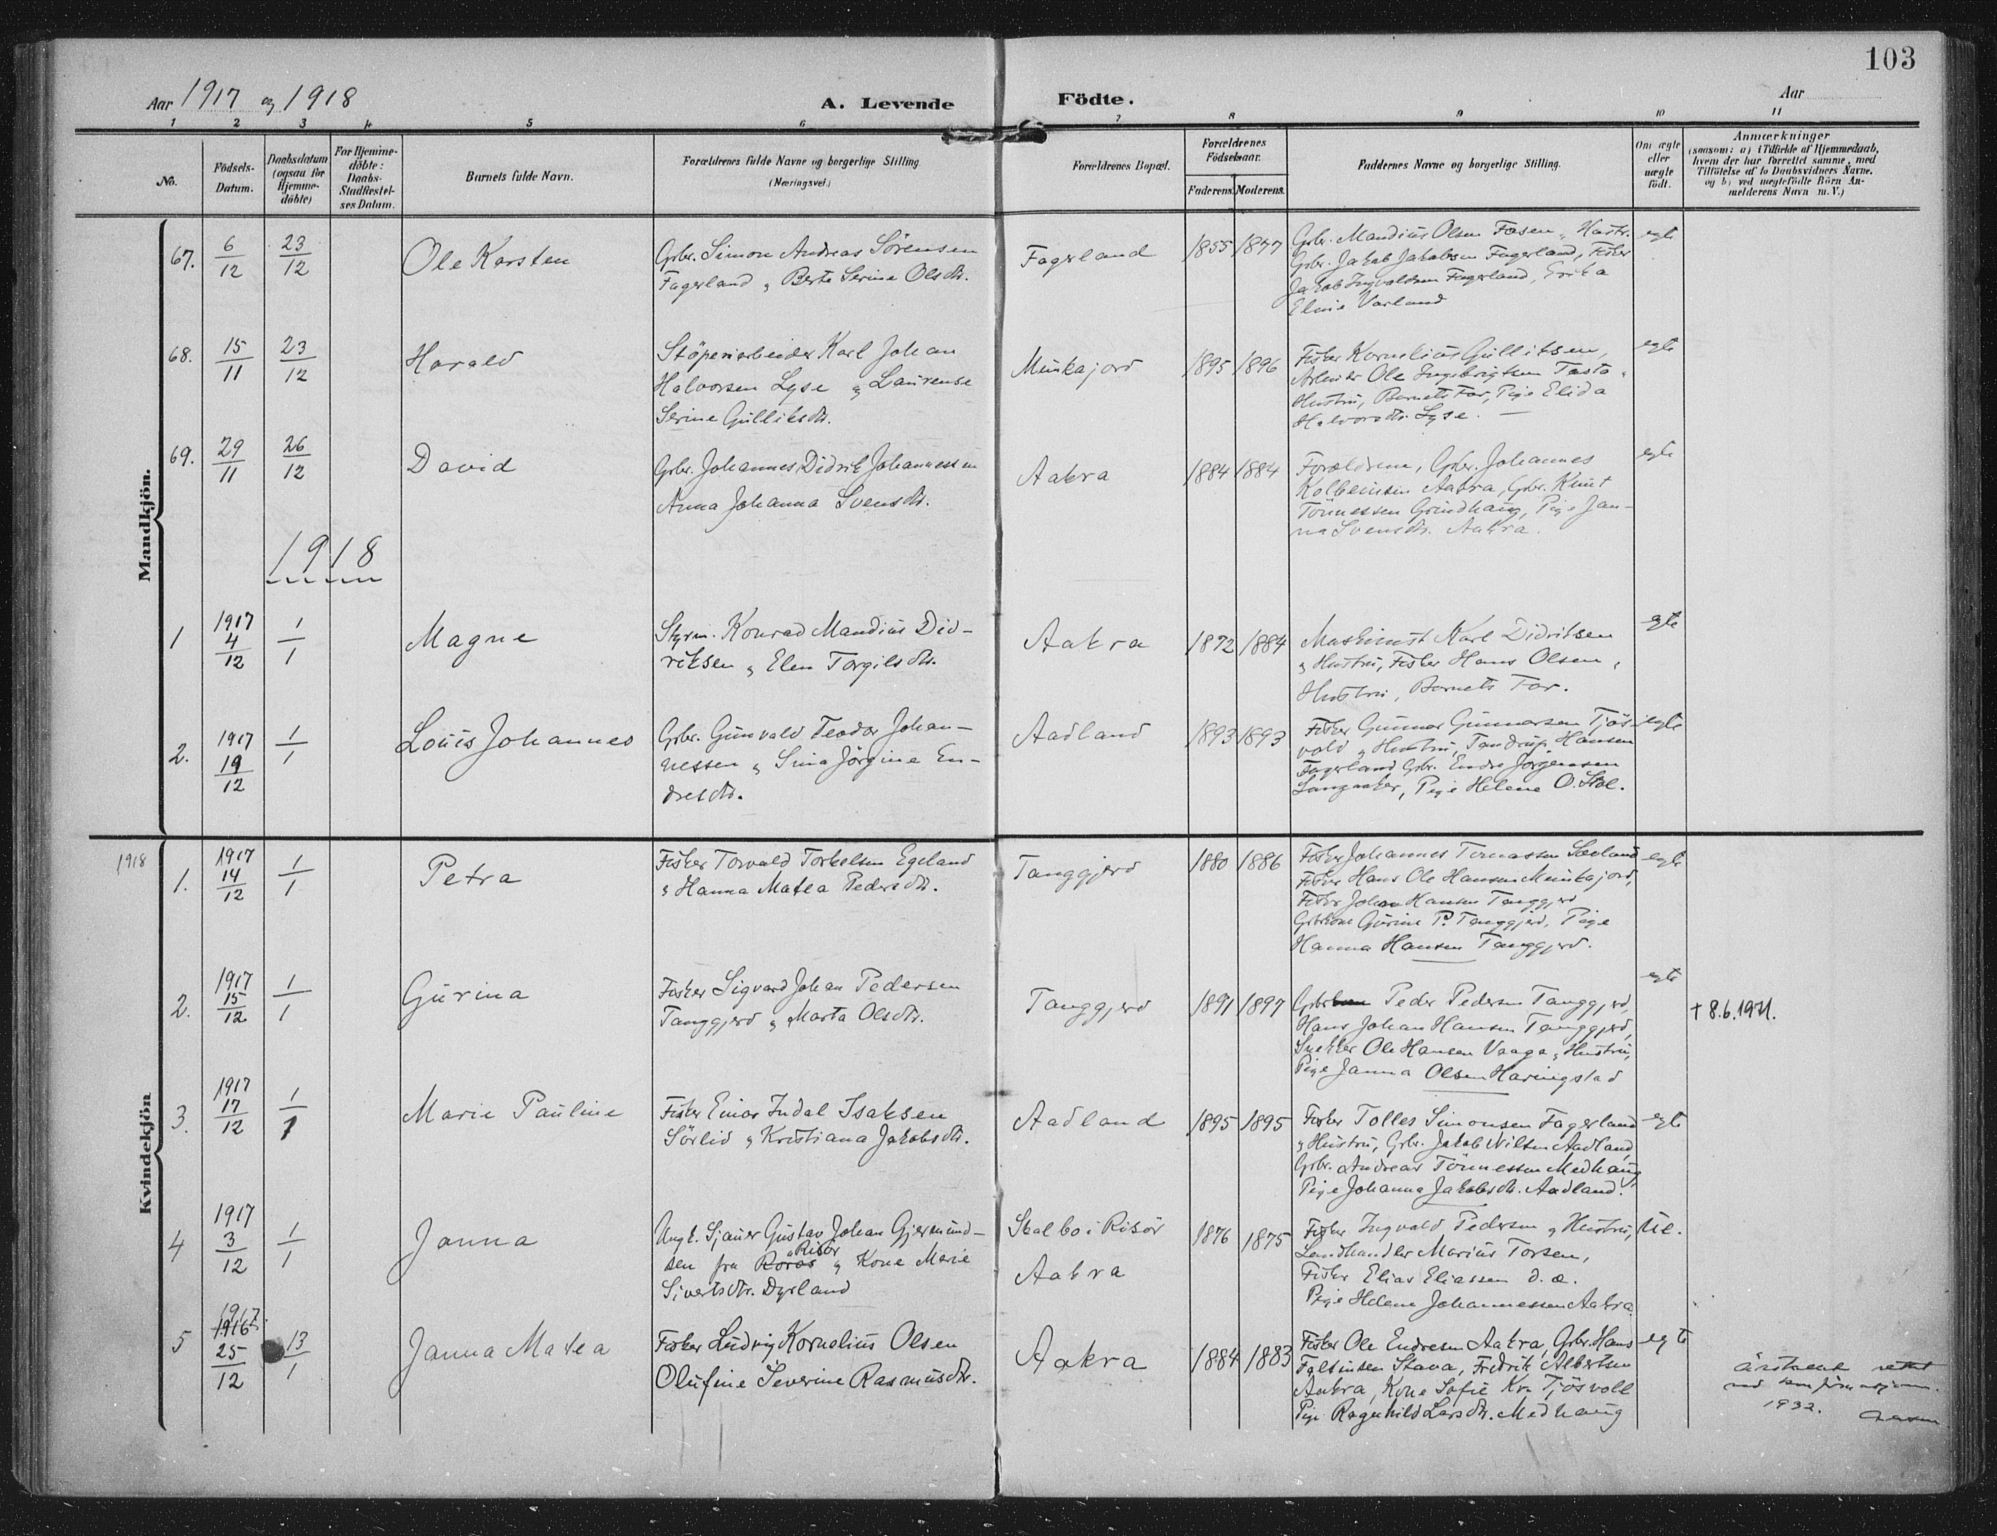 103
Aar 1917 og 1918
A. Levende Födte.
Aar
1 2 3 4 5 6 7 8 9 10 11
No.
Födsels-Datum.
Daabsdatum (ogsaa for Hjemme-döbte)
For Hjemme-döbte: Daabs-Stadfæstel-ses Datum.
Barnets fulde Navn.
Forældrenes fulde Navne og borgerlige Stilling (Næringsvei.)
Forældrenes Bopæl.
Forældrenes Födselsaar.
Faderens. Moderens.
Faddernes Navne og borgerlige Stilling.
Om ægte eller uægte födt.
Anmærkninger
(saasom: a) i Tilfælde af Hjemmedaab, hvem der har forrettet samme, med Tilföielse af to Daabsvidners Navne. og b) ved uægtefödte Börn An-melderens Navn m. V.)
Mandkjön.
67. 6/12 23/12 Ole Karsten
Gbr. Simon Andreas Sörensen
Fagerland og Berte Serine Olsdtr.
Fagerland 1855 1877
Gbr. Mandius Olsen Fosen og Hustr.
Gbr. Jakob Jakobsen Fagerland, Fisker
Jakob Ingvaldsen Fagerland,
Elvie Varland
egte
68. 15/11 23/12 Harald
Stöperiarbeider Karl Johan
Halvorsen Lyse og Laurense
Serine Gulliksdtr.
Munkajord 1895 1896
Fisker Kornelius Gullitsen,
Arbeider Ole Ingebrigtsen Tasta og
Hustru, Barnets Far, Pige Elida
Halvorsdtr. Lyse.
egte
69. 29/11 26/12 David
Gbr. Johannes Didrik Johannessen
Anna Johanna Svensdtr.
Aakra 1884 1884
Forældrene, Gbr. Johannes
Kolbeinsen Aakra, Gbr. Knut
Tönnessen Grindhaug, Pige Jan-
na Svensdtr. Aakra.
egte
1918
1 1917 4/12 1/1 Magne
Styrm. Konrad Mandius Did-
riksen og Elen Torgilsdtr.
Aakra 1872 1884
Maskinist Karl Didriksen
og Hustru, Fisker Hans Olsen,
Hustru, Barnets Far.
egte
2. 1917 19/12 1/1 Louis Johannes
Gbr. Gunvald Teodor Johan-
nessen og Sina Jörgine En-
dresdtr.
Aadland 1893 1893
Fisker Gunnar Gunnarsen Tjös-
vold og Hustru, Hansen
Fagerland Gbr. Endre Jörgensen
Langaaker, Pige Helene O. Stol.
egte
1918
Kvindekjön
1. 1917 14/12 1/1 Petra
Fisker Torvald Torkelsen Egeland
og Hanna Matea Pedersdtr.
Tanggjerd 1880 1886
Fisker Johannes Tomassen Sævland
Fisker Hans Ole Hansen Munkajord,
Fisker Johan Hansen Tanggjerd
Gbrkone Gurine P. Tanggjerd, Pige
Hanna Hansen Tanggjerd.
egte
2. 1917 15/12 1/1 Gurina
Fisker Sigvard Johan Pedersen
Tanggjerd og Marta Olsdtr.
Tanggjerd 1891 1897
Gbr Peder Pedersen Tanggjerd,
Hans Johan Hansen Tanggjerd,
Snekker Ole Hansen Vaage og Hustru,
Pige Janna Olsen Haringstad
egte
† 8.6.1971.
3. 1917 17/12 1/1 Marie Pauline
Fisker Einar Indal Isaksen
Sörlid og Kristiana Jakobsdtr.
Aadland 1895 1895
Fisker Tolles Simonsen Fagerland
og Hustru, Gbr. Jakob Nilsen Aadland,
Gbr. Andreas Tönnessen Medhaug,
Pige Johanna Jakobsdtr. Aadland.
egte
4 1917 3/12 1/1 Janna
Ungk. Sjauer Gustav Johan Gjermund-
sen fra Roros Risör og Kone Marie
Sivertsdtr. Dyrland
Skalbo i Risör
Aakra
1876 1875
Fisker Ingvald Pedersen og Hustru,
Landhandler Marius Torsen,
Fisker Elias Eliassen d. æ.
Pige Helene Johannessen Aakra
Ue.
5 1917 1916 25/12 13/1 Janna Matea
Fisker Ludvig Kornelius Olsen
Olufine Severine Rasmusdtr.
Aakra 1884 1883
Fisker Ole Endresen Aakra, Gbr. Hans
Stava, Fredrik Albertsen
Aakra, Kone Sofie Kr. Tjösvoll
Pige Ragnhild Larsdtr. Medhaug
egte
Årstallet rettet
ved konfirmasjonen.
1932.